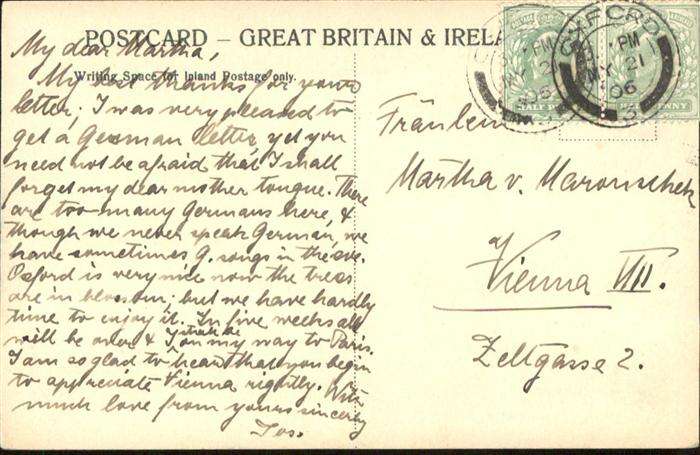 POSTCARD – GREAT BRITAIN & IRELA
Writing Space for Inland Postage only.
My dear Martha,
My best thanks for yours
letter; I was very pleased to
get a German letter, yet you
need not be afraid that I shall
forget my dear mother tongue. There
are too many Germans here, &
though we never speak German, we
have sometimes G. songs in the eve.
Oxford is very nice now the trees
are in blossom; but we have hardly
time to enjoy it. In five weeks all
will be over & I shall be on my way to Paris.
I am so glad to hear that you begin
to appreciate Vienna rightly. With
much love from yours sincerely
Jos.
OXFORD
PM
MY 21
06
HALF PENNY
Fräulein
Martha v. Maronscheck
Vienna VIII.
Zeltgasse 2.